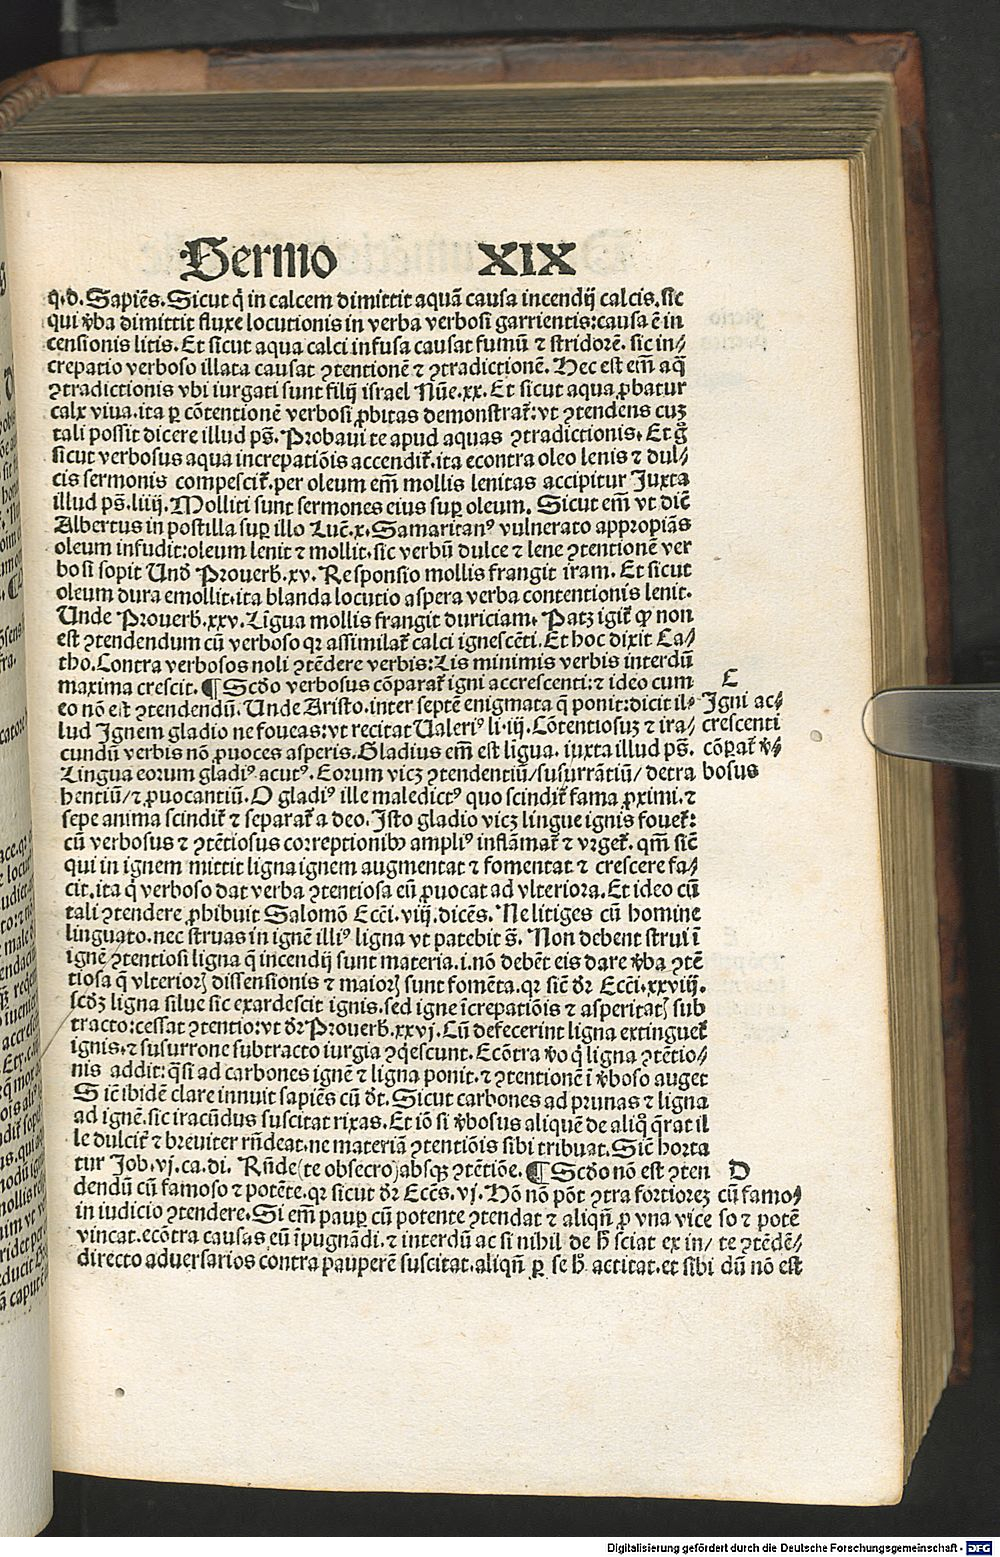 Sermo XIX
q.d. Sapiēs. Sicut q̇ in calcem dimittit aquā causa incendij calcis, sic
qui v̇ba dimittit fluxe locutionis in verba verbosi garrientis: causa ē in
censionis litis. Et sicut aqua calci infusa causat fumū ⁊ stridorē. sic in⸗
crepatio verboso illata causat ꝯtentionē ⁊ ꝯtradictionē. Hec est em̄ aq̄
ꝯtradictionis vbi iurgati sunt filij israel Nūe.xx. Et sicut aqua ꝓbatur
calx viua. ita ꝑ cōtentionē verbosi ꝓbitas demonstrat̄: vt ꝯtendens cuꝫ
tali possit dicere illud pš. Probaui te apud aquas ꝯtradictionis. Et g̊
sicut verbosus aqua increpatiōis accendit̄. ita econtra oleo lenis ⁊ dul⸗
cis sermonis compescit̄. per oleum em̄ mollis lenitas accipitur Juxta
illud pš. liiij. Molliti sunt sermones eius suꝑ oleum. Sicut em̄ vt dic̄
Albertus in postilla suꝑ illo Luc̄.x. Samaritanꝰ vulnerato appropiās
oleum infudit: oleum lenit ⁊ mollit. sic verbū dulce ⁊ lene ꝯtentionē ver
bosi sopit Und̄ Prouerb̄.xv. Responsio mollis frangit iram. Et sicut
oleum dura emollit. ita blanda locutio aspera verba contentionis lenit.
Unde Prouerb̄.xxv. Līgua mollis frangit duriciam. Patꝫ igit̄ ꝙ non
est ꝯtendendum cū verboso qꝛ assimilat̄ calci ignescēti. Et hoc dixit Ca⸗
tho. Contra verbosos noli ꝯtēdere verbis: Lis minimis verbis interdū
maxima crescit. ¶ Scd̄o verbosus cōparat̄ igni accrescenti: ⁊ ideo cum
eo nō est ꝯtendendū. Unde Aristo. inter septē enigmata q̄ ponit: dicit il⸗
lud Ignem gladio ne foueas: vt recitat Ualeriꝰ li.iij. Cōtentiosuꝫ ⁊ ira⸗
cundū verbis nō ꝓuoces asperis. Gladius em̄ est līgua. iuxta illud pš.
Lingua eorum gladiꝰ acutꝰ. Eorum vicꝫ ꝯtendentiū/susurrātiū/detra
hentiū/⁊ ꝓuocantiū. O gladiꝰ ille maledictꝰ quo scindit̄ fama ꝓximi. ⁊
sepe anima scindit̄ ⁊ separat̄ a deo. Isto gladio vicꝫ lingue ignis fouet̄:
cū verbosus ⁊ ꝯtētiosus correptionibꝰ ampliꝰ inflāmat̄ ⁊ vrget̄. qm̄ sic̄
qui in ignem mittit ligna ignem augmentat ⁊ fomentat ⁊ crescere fa⸗
cit. ita q̇ verboso dat verba ꝯtentiosa eū ꝓuocat ad vlteriora. Et ideo cū
tali ꝯtendere ꝓhibuit Salomō Ecc̄i.viij. dicēs. Ne litiges cū homine
linguato. nec struas in ignē illiꝰ ligna vt patebit š. Non debent strui ī
ignē ꝯtentiosi ligna q̄ incendij sunt materia. i. nō debēt eis dare v̇ba ꝯtē
tiosa q̄ vlterioꝝ dissensionis ⁊ maioꝝ sunt fomēta. qꝛ sic̄ dr̄ Ecc̄i.xxviij.
scd̄ꝫ ligna silue sic exardescit ignis. sed igne īcrepatiōis ⁊ asperitatꝭ sub
tracto: cessat ꝯtentio: vt dr̄ Prouerb̄.xxvj. Cū defecerint ligna extinguet̄
ignis. ⁊ susurrone subtracto iurgia ꝯq̇escunt. Ecōtra v̇o q̇ ligna ꝯtētio⸗
nis addit: q̄si ad carbones ignē ⁊ ligna ponit. ⁊ ꝯtentionē ī v̇boso auget
Sic̄ ibidē clare innuit sapiēs cū dt̄. Sicut carbones ad prunas ⁊ ligna
ad ignē. sic iracūdus suscitat rixas. Et iō si v̇bosus aliquē de aliq̊ q̄rat il
le dulcit̄ ⁊ breuiter rn̄deat. ne materiā ꝯtentiōis sibi tribuat. Sic̄ horta
tur Job.vj.ca.di. Rn̄de (te obsecro) absqꝫ ꝯtētiōe. ¶ Scd̄o nō est ꝯten
dendū cū famoso ⁊ potēte. qꝛ sicut dr̄ Ecc̄s.vj. Hō nō pōt ꝯtra fortioreꝫ
in iudicio ꝯtendere. Si em̄ pauꝑ cū potente ꝯtendat ⁊ aliqn̄ ꝓ vna vice
vincat. ecōtra causas eū īpugnādi. ⁊ interdū ac si nihil de h̄ sciat ex in⸗
directo aduersarios contra pauperē suscitat. aliqn̄ ꝑ se h̄ actitat. et sibi dū nō est
C
Igni ac⸗
crescenti
cōꝑat̄ v̇⸗
bosus
D
cū famo⸗
so ⁊ potē
te ꝯtēdē⸗
Digitalisierung gefördert durch die Deutsche Forschungsgemeinschaft - DFG